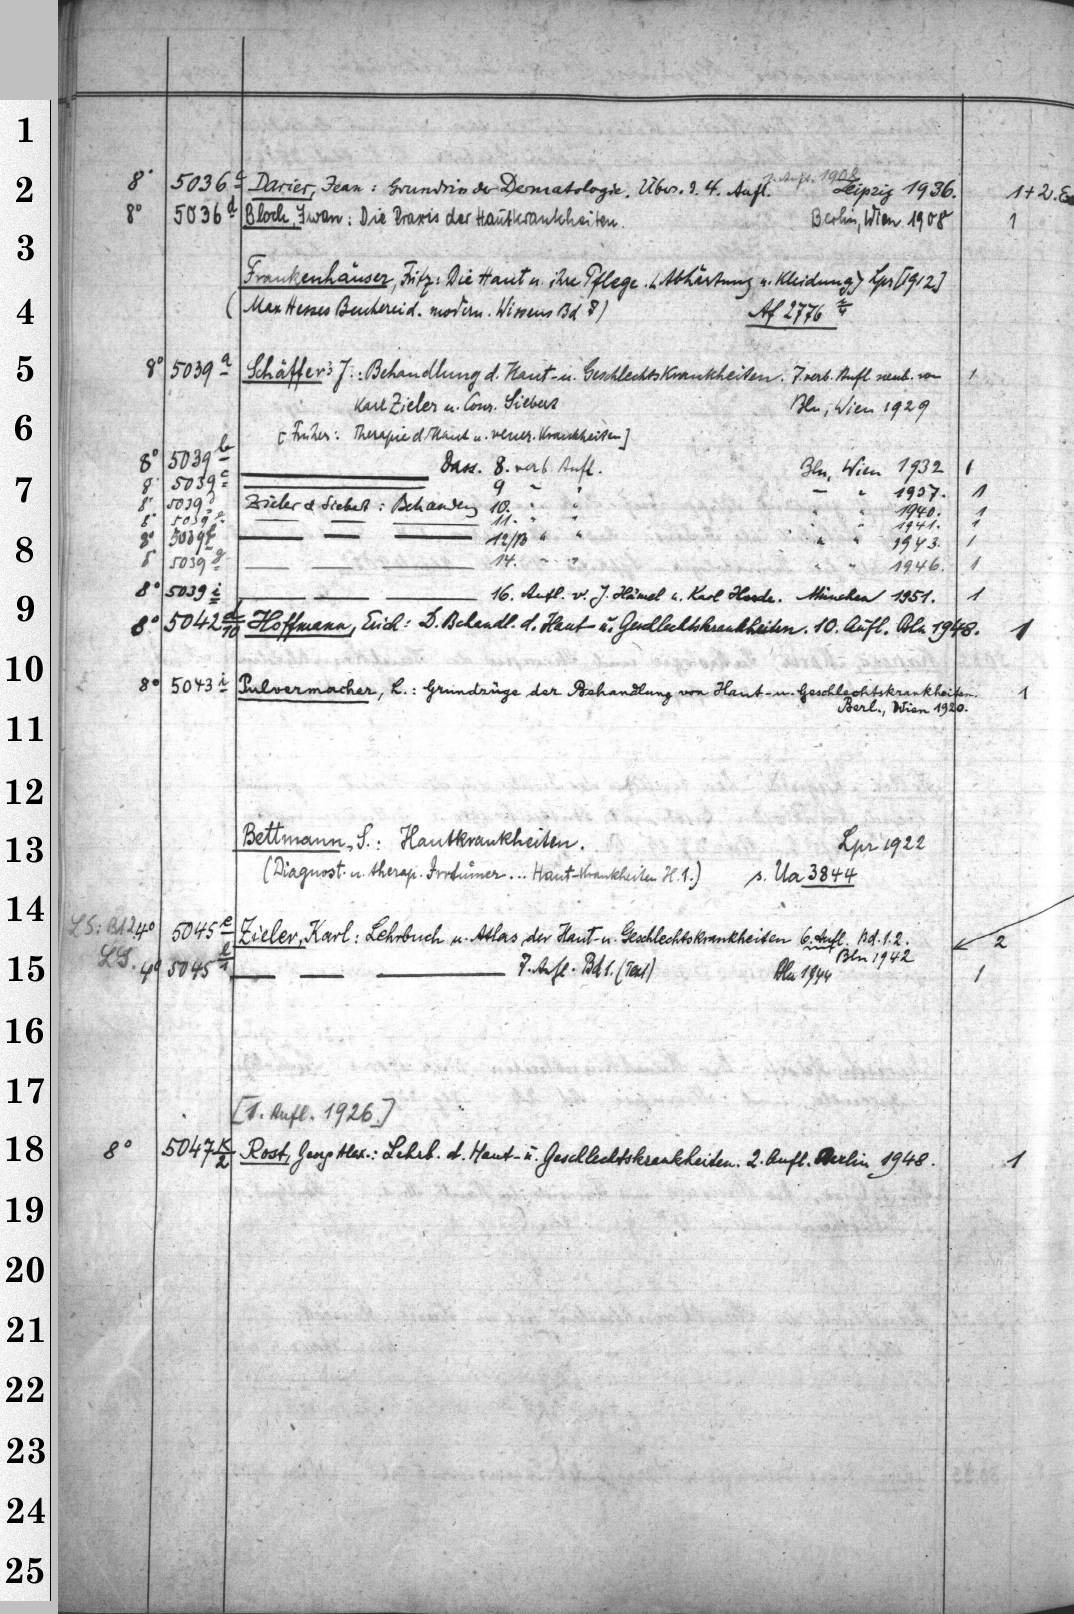 1
2
3
4
5
6
7
8
9
10
11
12
13
14
15
16
17
18
19
20
21
22
23
24
25
1. Aufl. 1908
8° 5036 c Darier, Jean: Grundriss der Dermatologie. Übers. d. 4. Aufl. Leipzig 1936. 1+2. Ex
8° 5036 d Bloch, Iwan: Die Praxis der Hautkrankheiten. Berlin, Wien 1908 1
Frankenhäuser, Fritz: Die Haut u. ihre Pflege. (Abhärtung u. Kleidung) Lpz [1912]
(Max Hesses Bücherei d. modern. Wissens Bd 8) Af 2776
8° 5039 a Schäffer, J.: Behandlung d. Haut- u. Geschlechtskrankheiten. 7. verb. Aufl. neub. von 1
Karl Zieler u. Conr. Siebert Bln, Wien 1929
[Früher: Therapie d. Haut u. vener. Krankheiten]
8° 5039 b Dass. 8. verb. Aufl. Bln, Wien 1932 1
8° 5039 c 9 " " — " 1937. 1
8° 5039 d Zieler & Siebert: Behandlg 10. " " " " 1940. 1
8° 5039 e — — — 11. " " " " 1941. 1
8° 5039 f — — — 12/13 " " " " 1943. 1
8° 5039 g — — — 14. " " " " 1946. 1
8° 5039 i — — — 16. Aufl. v. J. Hämel u. Karl München 1951. 1
8° 5042 d/10 Hoffmann, Erich: D. Behandl. d. Haut- u. Geschlechtskrankheiten. 10. Aufl. Bln 1948. 1
8° 5043 i Pulvermacher, L.: Grundzüge der Behandlung von Haut- u. Geschlechtskrankheiten. 1
Berl., Wien 1920.
Bettmann, S.: Hautkrankheiten. Lpz 1922
(Diagnost. u. therap. Irrtümer ... Haut-Krankheiten H. 1.) s. Ua 3844
LS: 4° 5045 e Zieler, Karl: Lehrbuch u. Atlas der Haut- u. Geschlechtskrankheiten 6. Aufl. Bd. 1.2. 2
Bln 1942
LS. 4° 5045 e/1 — — — 7. Aufl. Bd 1. (Text) Bln 1944 1
[1. Aufl. 1926.]
8° 5047 k/2 Rost, Georg Alex.: Lehrb. d. Haut- u. Geschlechtskrankheiten. 2. Aufl. Berlin 1948. 1